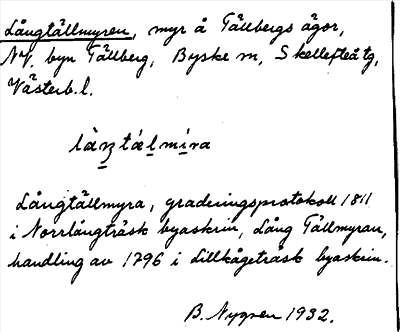 Långtällmyren, myr å Tällbergs ägor,
NV. byn Tällberg, Byske sn, Skellefteå tg,
Västerb. l.
Långtällmyra, graderingsprotokoll 1811
i Norrlångträsk byaskrin, Lång Tällmyran,
handling av 1796 i Lillkågeträsk byaskrin.
B. Nygren 1932.